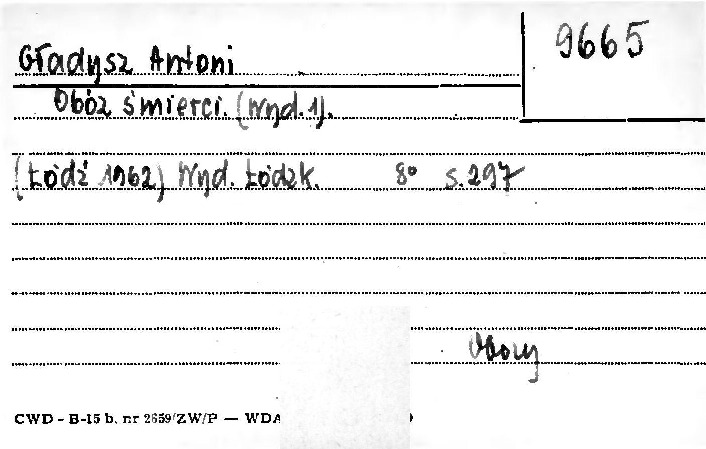 9665
Gładysz Antoni
Obóz śmierci. (Wyd. 1).
(Łódź 1962) Wyd. Łódzk. 8° s. 297
Obozy
CWD - B-15 b. nr 2659/ZW/P — WDA